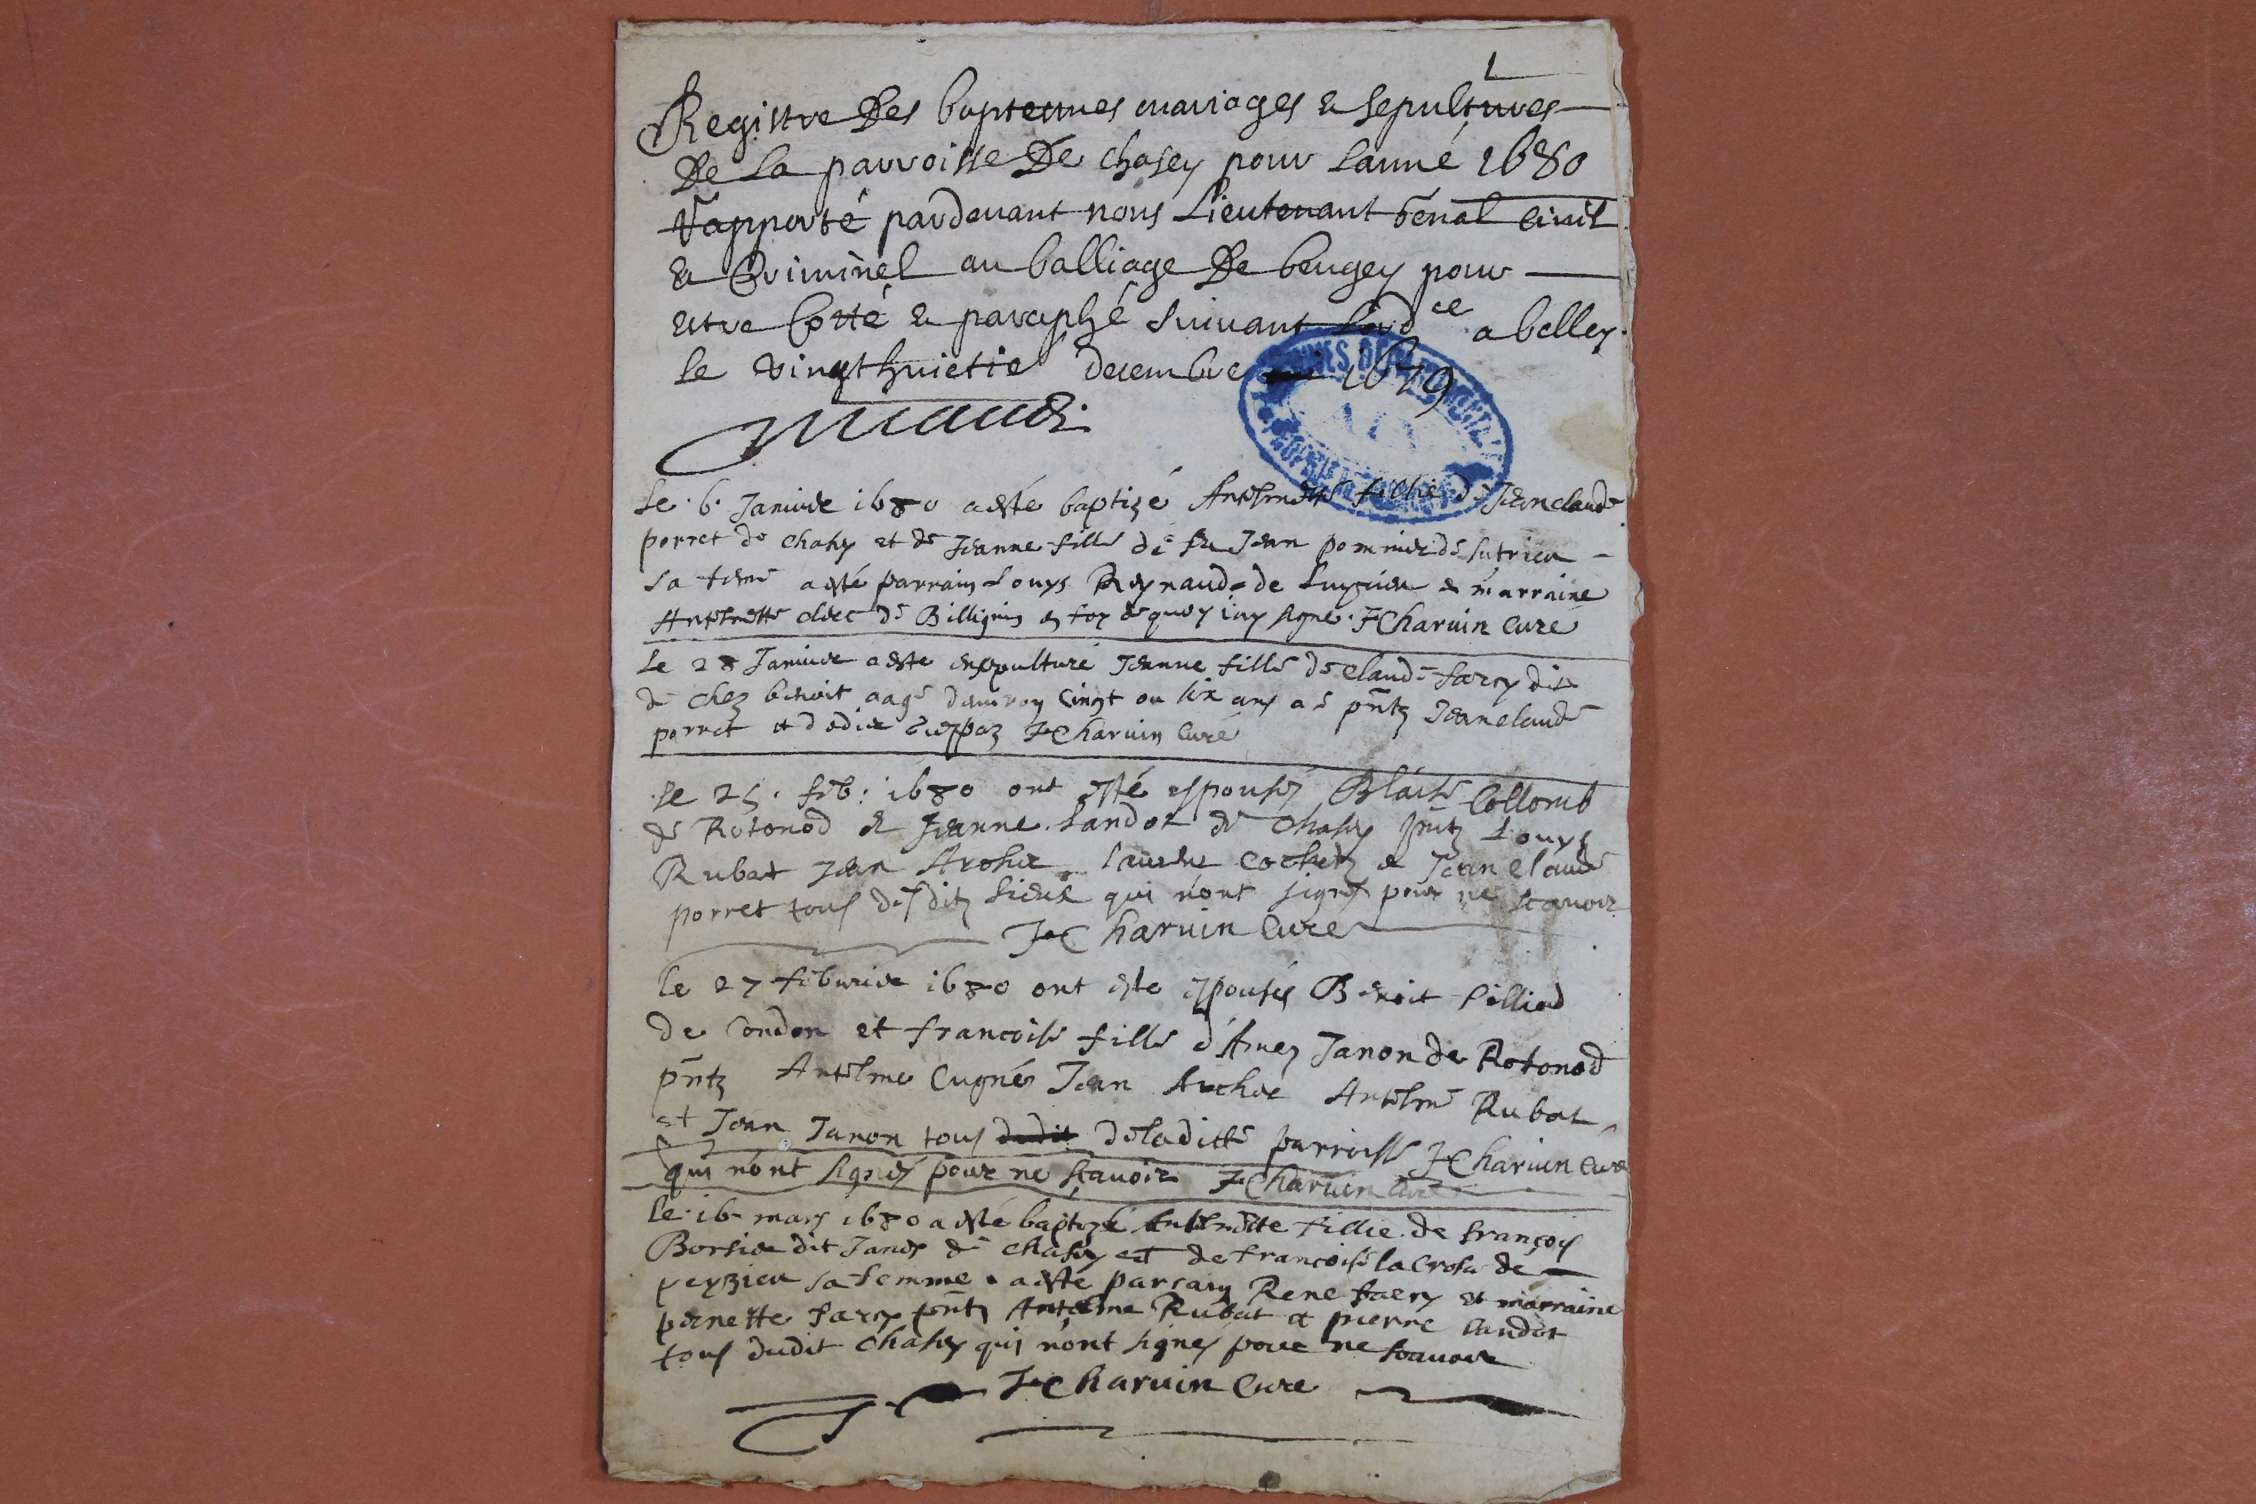 1
Registre Des baptemes mariages & sepultures
De La parroisse De chasey pour Lanné 1680
Rapporté pardevant nous Lieutenant Genal civil
& Criminel au balliage De beugey pour
estre Cotté & paraphé suivant Lordce a belley
le vingthuictie decembre 1679
Le 6 Janvier 1680 a esté baptizé Anthelmette fillie de Jean claude
porret de chasey et de Jeanne fille de feu Jean pommier de sutrieu
sa feme a esté parrain Louys Reynaud de Luyrieu & marraine
Anthelmette de Billignin en foy de quoy jay signé. F Charvin Curé
Le 28 Janvier a este ensepulturé Jeanne fille de Claude farcy dit
de chez benoit aagé denviron cinqt ou six ans a é pntz Jean claude
porret et F Charvin Curé
Le 25. feb: 1680 ont esté espousés Blaise Collomb
de Rotonod & Jeanne Landot de Chasey pntz Louys
Rubat Jean Archer laurent Cochet & Jean claude
porret tous desditz lieux qui n'ont signés pour ne scavoir
F Charvin Curé
le 27 feburier 1680 ont este espousés Benoit Pilliod
de Condon et francoise fille d'Amez Janon de Rotonod
pntz Antelme Cugnés Jean Archer Antelme Rubat
et Jean Janon tous dudit deladitte parroisse F Charvin Curé
qui n'ont signés pour ne scavoir F Charvin Curé
le 16 mars 1680 a esté baptizé Antelmette fillie de françois
Borsier dit Janes de Chasey et de francoise la Crosa de
peyzieu sa femme a esté parrain Rene farcy et marraine
pernette farcy pntz Antelme Rubat et pierre Landot
tous dudit Chasey qui n'ont signés pour ne scavoir
F Charvin Curé